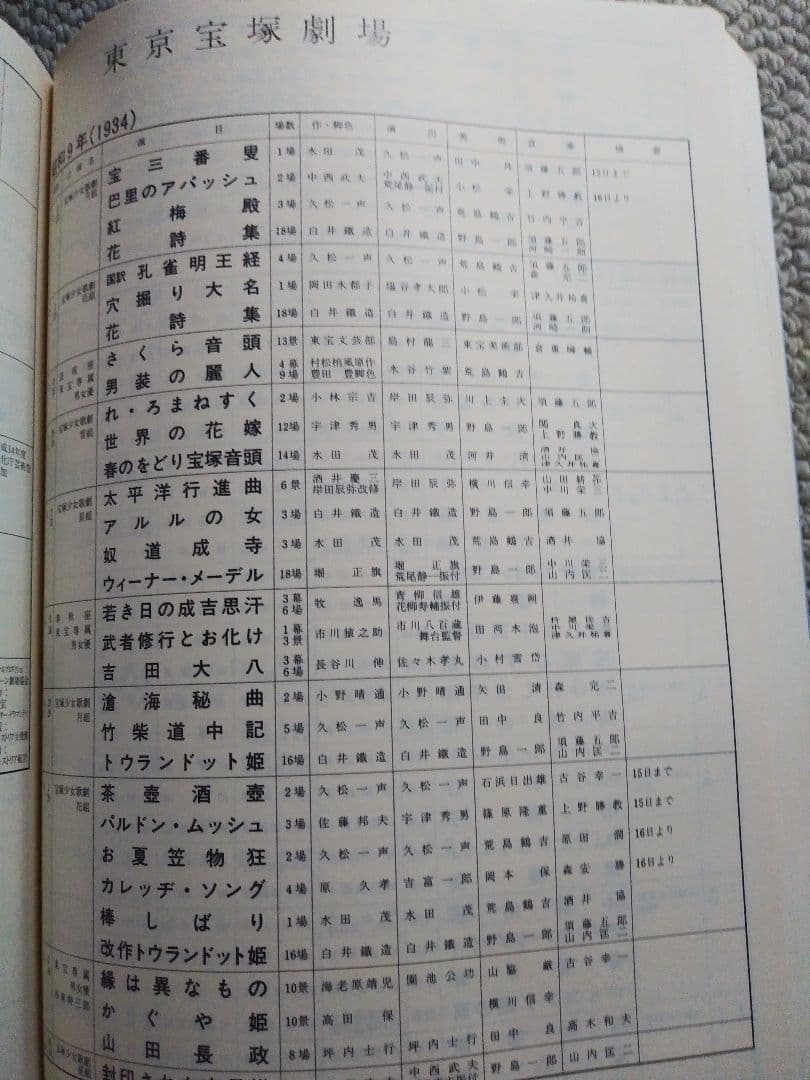 東京宝塚劇場
昭和9年(1934)
演目 場数 作・脚色 演出 美術 音楽 摘要
宝三番叟 1場 水田茂 久松一声 田中良 須藤五郎 15日まで
巴里のアパッシュ 2場 中西武夫 中西武夫 荒尾静一振付 小松栄 上野勝教 16日より
紅梅殿 3場 久松一声 久松一声 荒島鶴吉 竹内平吉
花詩集 18場 白井鐵造 白井鐵造 野島一郎 須藤五郎
国訳 孔雀明王経 4場 久松一声 久松一声 荒島鶴吉 須藤五郎
穴掘り大名 1場 岡田水都子 塩谷孝太郎 小松栄 津久井祐喜
花詩集 18場 白井鐵造 白井鐵造 野島一郎 須藤五郎
さくら音頭 13景 東宝文芸部 島村龍三 東宝美術部
男装の麗人 4幕9場 村松梢風原作 豊田豊脚色 水谷竹紫 荒島鶴吉
れ・ろまねすく 2場 小林宗吉 岸田辰弥 川上圭夫 須藤五郎
世界の花嫁 12場 宇津秀男 宇津秀男 野島一郎 上野勝教
春のをどり宝塚音頭 14場 水田茂 水田茂 河井清 酒井協 山内匡二 津久井祐喜
太平洋行進曲 6景 酒井慶三 岸田辰弥改修 岸田辰弥 横川信幸 山田耕筰 中川栄三
アルルの女 3場 白井鐵造 白井鐵造 野島一郎 須藤五郎
奴道成寺 3場 水田茂 水田茂 荒島鶴吉 酒井協
ウィーナー・メーデル 18場 堀正旗 堀正旗 荒尾静一振付 野島一郎 中川栄三 山内匡二
若き日の成吉思汗 3幕6場 牧逸馬 青柳信雄 花柳寿輔振付 伊藤熹朔
武者修行とお化け 1幕3景 市川猿之助 市川八百蔵 舞台監督 田河水泡 杵屋佐吉 中川栄三 津久井祐喜
吉田大八 3幕6場 長谷川伸 佐々木孝丸 小村雪岱
滄海秘曲 2場 小野晴通 小野晴通 矢田清 森完二
竹柴道中記 5場 久松一声 久松一声 田中良 竹内平吉
トウランドット姫 16場 白井鐵造 白井鐵造 野島一郎 須藤五郎 山内匡二
茶壺酒壺 2場 久松一声 久松一声 石浜日出雄 古谷幸一 15日まで
パルドン・ムッシュ 3場 佐藤邦夫 宇津秀男 篠原隆重 上野勝教 15日まで
お夏笠物狂 2場 久松一声 久松一声 荒島鶴吉 原田潤 16日より
カレッヂ・ソング 4場 原久孝 吉富一郎 岡本保 森安勝 16日より
棒しばり 1場 水田茂 水田茂 荒島鶴吉 酒井協
改作トウランドット姫 16場 白井鐵造 白井鐵造 野島一郎 須藤五郎 山内匡二
縁は異なもの 10景 海老原靖児 園池公功 山脇巌 古谷幸一
かぐや姫 10景 高田保 横川信幸
山田長政 8場 坪内士行 坪内士行 田中良 高木和夫
中西武夫 野島一郎 山内匡二